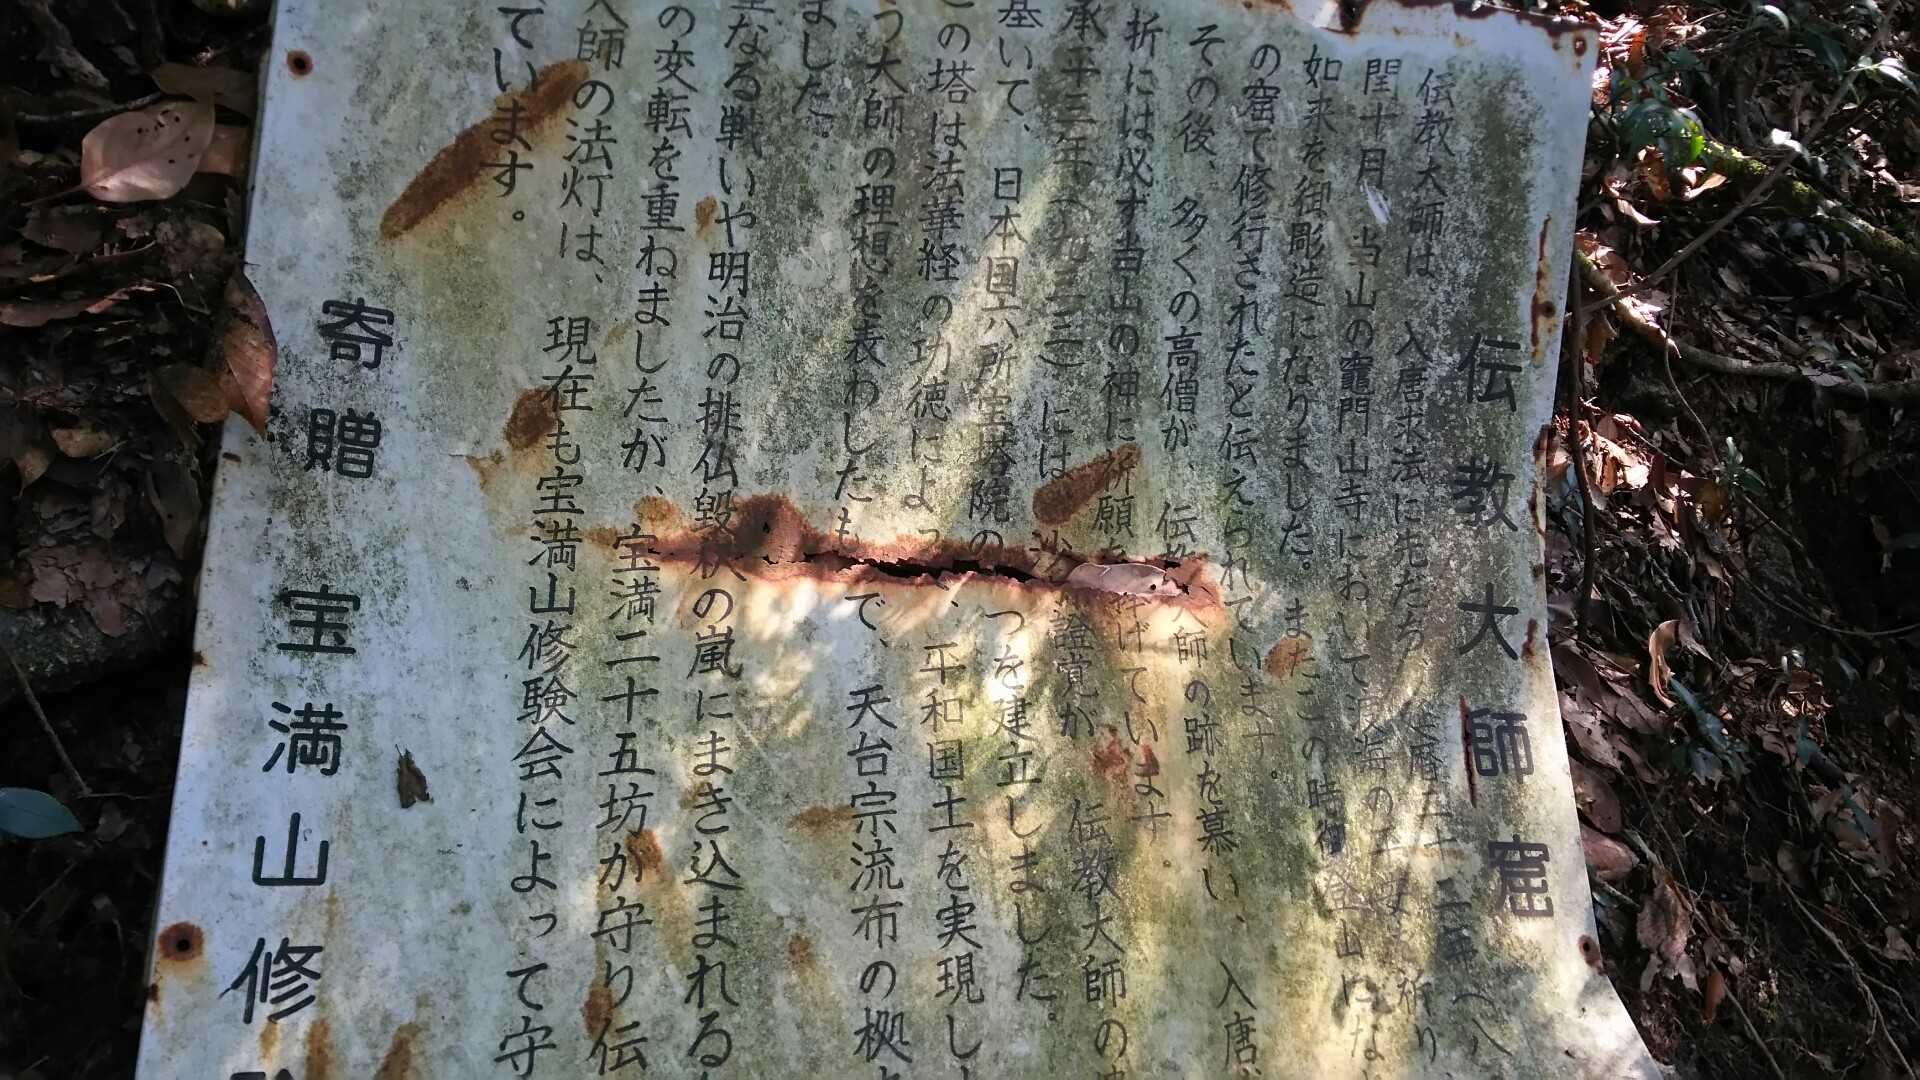 伝教大師窟
伝教大師は、入唐求法に先だち、延暦二十二年(八
閏十月、当山の竈門山寺において渡海の平安を祈り、
如来を御彫造になりました。またこの時御登山にな
の窟で修行されたと伝えられています。
その後、多くの高僧が、伝教大師の跡を慕い、入唐
折には必ず当山の神に祈願を捧げています。
承平三年(九三三)には、沙 證覚が 伝教大師の
基いて、日本国六所宝塔院の つを建立しました。
この塔は法華経の功徳によって、平和国土を実現し
う大師の理想を表わしたもので、天台宗流布の拠
ました。
なる戦いや明治の排仏毀釈の嵐にまき込まれる
の変転を重ねましたが、宝満二十五坊が守り伝
大師の法灯は、現在も宝満山修験会によって守
ています。
寄贈 宝満山修